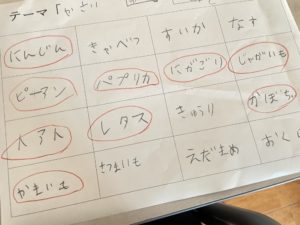 テーマ「やさい
にんじん きゃべつ すいか なす
ピーマン パプリカ にがごり じゃがいも
トマト レタス きゅうり かぼちゃ
かまいも さつまいも えだまめ おく